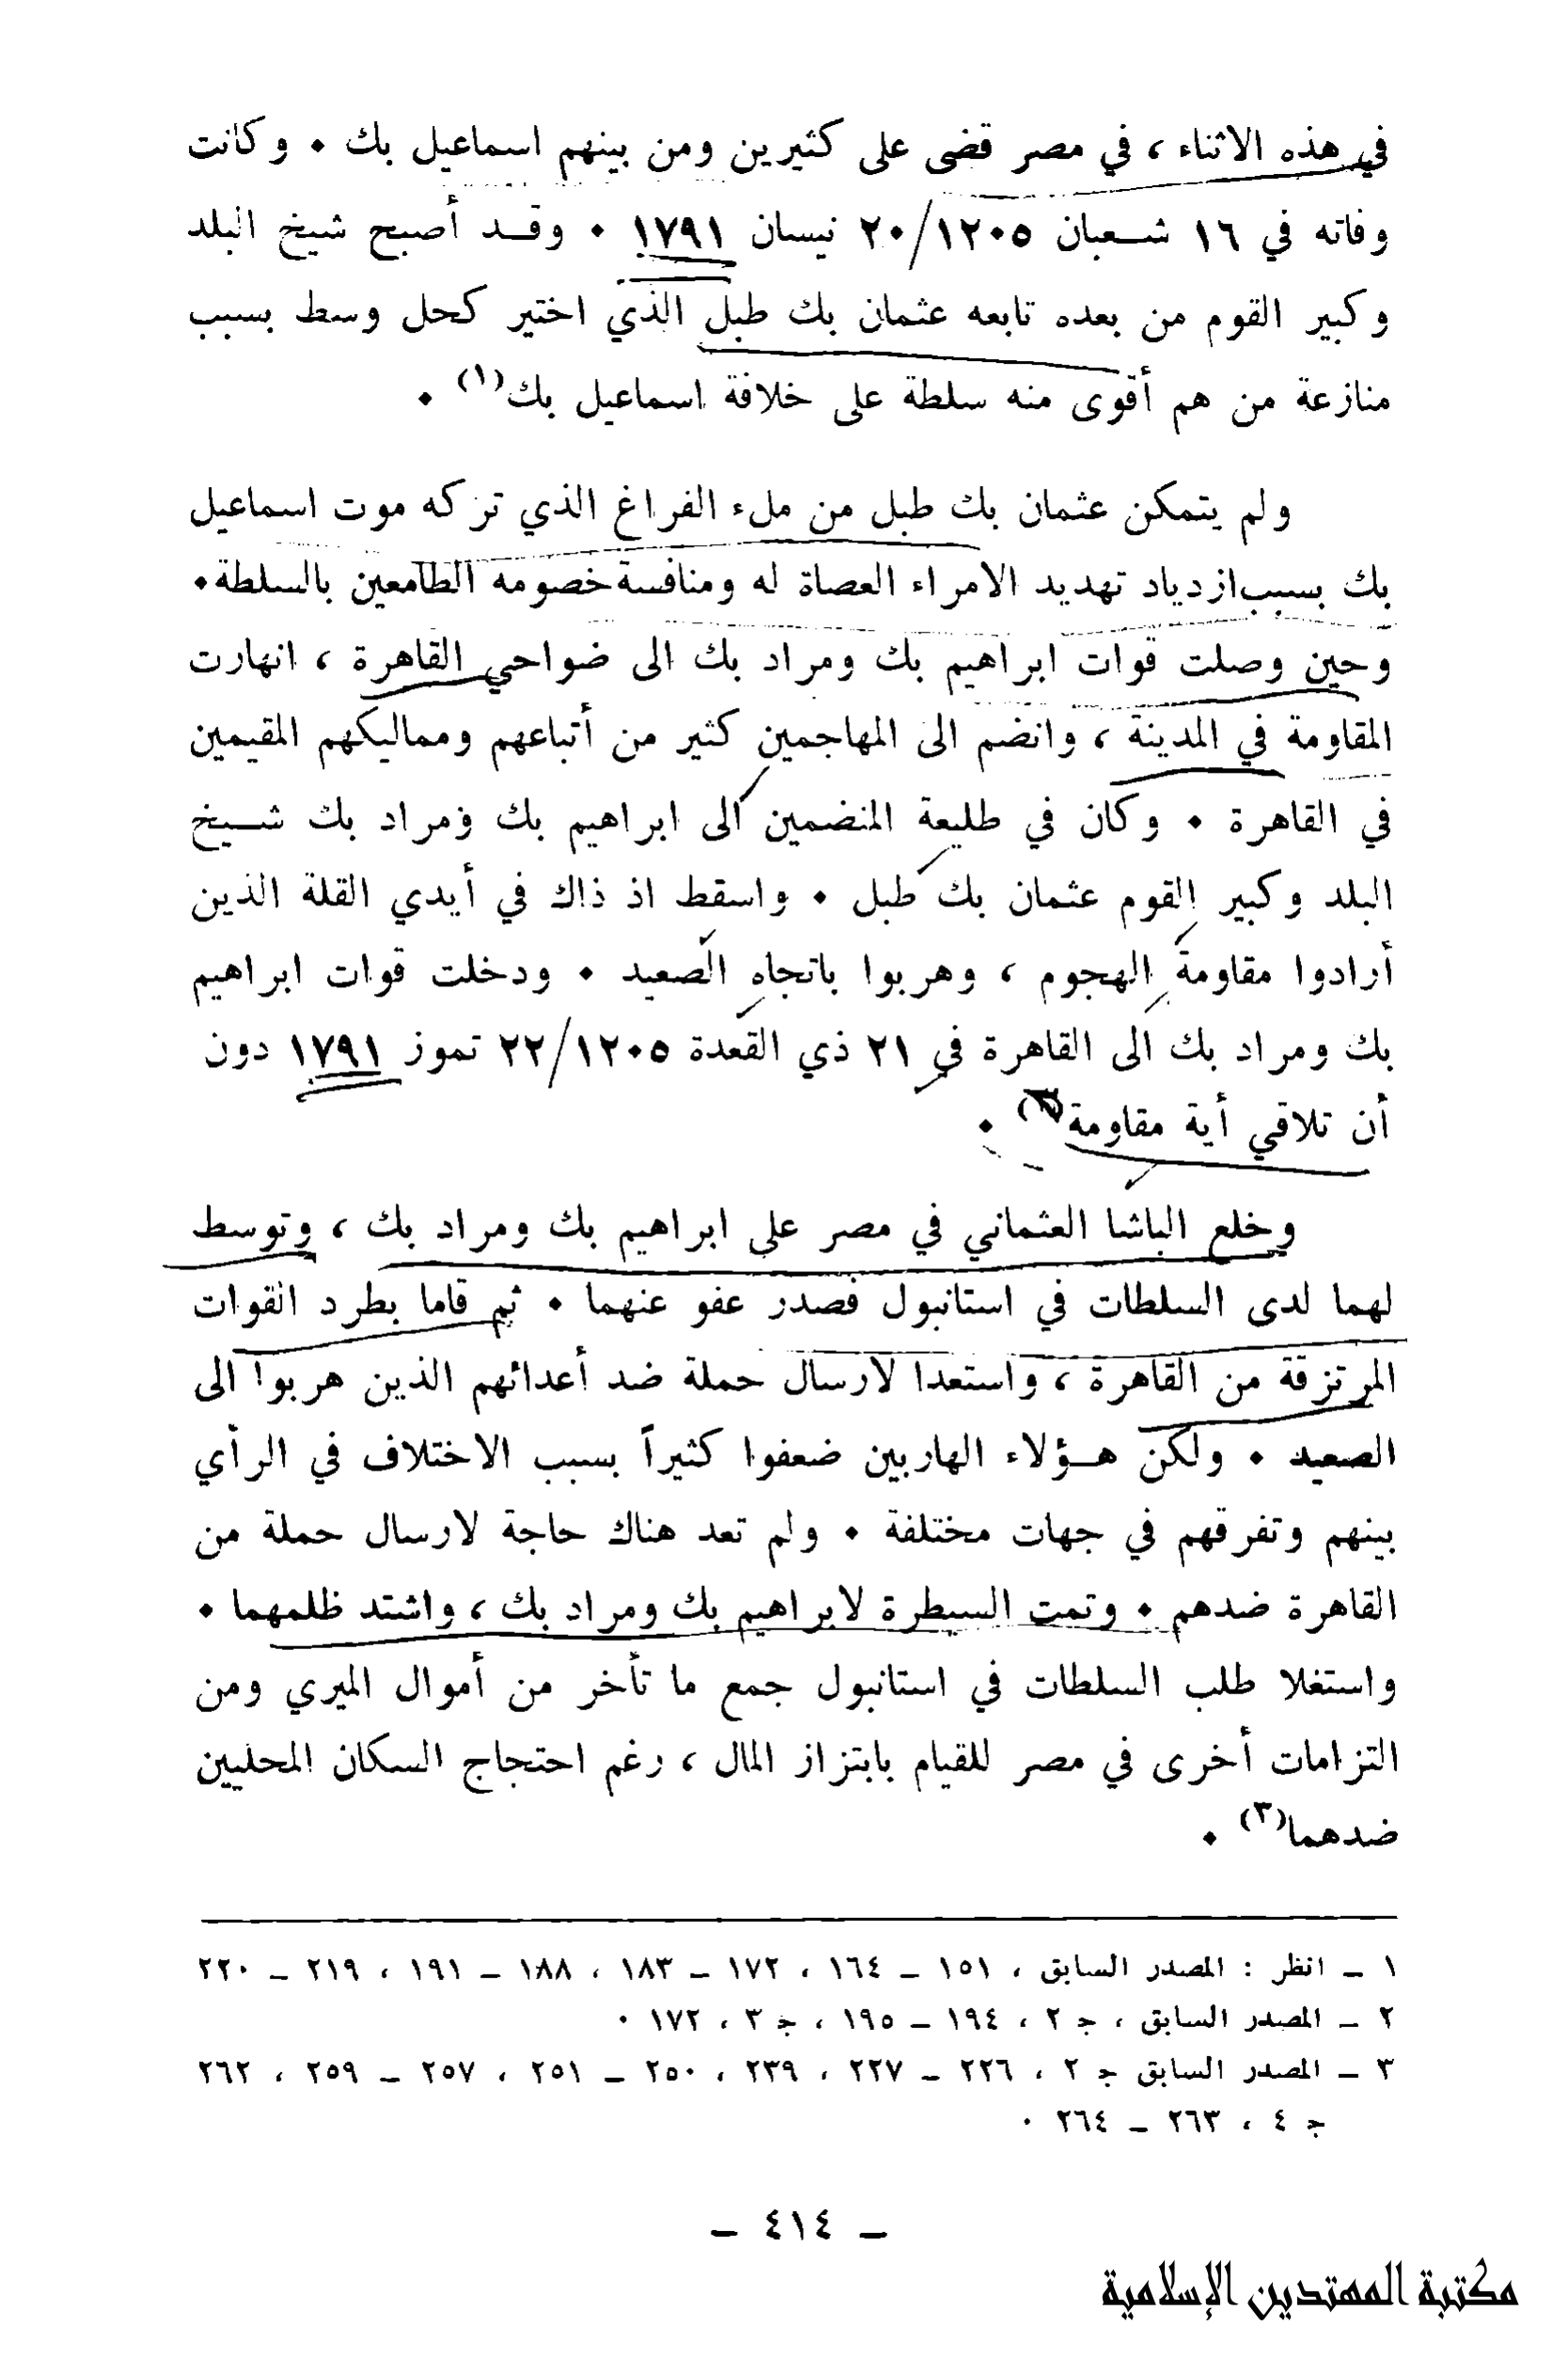 في هذه الاثناء ، في مصر قضى على كثيرين ومن بينهم اسماعيل بك . وكانت
وفاته في ١٦ شعبان ١٢٠٥/٢٠ نيسان ١٧٩١ . وقد أصبح شيخ البلد
وكبير القوم من بعده تابعه عثمان بك طبل الذي اختير كحل وسط بسبب
منازعة من هم أقوى منه سلطة على خلافة اسماعيل بك(١) .
ولم يتمكن عثمان بك طبل من ملء الفراغ الذي تركه موت اسماعيل
بك بسبب ازدياد تهديد الامراء العصاة له ومنافسة خصومه الطامعين بالسلطة .
وحين وصلت قوات ابراهيم بك ومراد بك الى ضواحي القاهرة ، انهارت
المقاومة في المدينة ، وانضم الى المهاجمين كثير من أتباعهم ومماليكهم المقيمين
في القاهرة . وكان في طليعة المنضمين الى ابراهيم بك ومراد بك شيخ
البلد وكبير القوم عثمان بك طبل . واسقط اذ ذاك في أيدي القلة الذين
أرادوا مقاومة الهجوم ، وهربوا باتجاه الصعيد . ودخلت قوات ابراهيم
بك ومراد بك الى القاهرة في ٢١ ذي القعدة ١٢٠٥/٢٢ تموز ١٧٩١ دون
أن تلاقي أية مقاومة(٢) .
وخلع الباشا العثماني في مصر على ابراهيم بك ومراد بك ، وتوسط
لهما لدى السلطات في استانبول فصدر عفو عنهما . ثم قاما بطرد القوات
المرتزقة من القاهرة ، واستعدا لارسال حملة ضد أعدائهم الذين هربوا الى
الصعيد . ولكن هؤلاء الهاربين ضعفوا كثيراً بسبب الاختلاف في الرأي
بينهم وتفرقهم في جهات مختلفة . ولم تعد هناك حاجة لارسال حملة من
القاهرة ضدهم . وتمت السيطرة لابراهيم بك ومراد بك ، واشتد ظلمهما .
واستغلا طلب السلطات في استانبول جمع ما تأخر من أموال الميري ومن
التزامات أخرى في مصر للقيام بابتزاز المال ، رغم احتجاج السكان المحليين
ضدهما(٣) .
١ ـ انظر : المصدر السابق ، ١٥١ ـ ١٦٤ ، ١٧٢ ـ ١٨٣ ، ١٨٨ ـ ١٩١ ، ٢١٩ ـ ٢٢٠
٢ ـ المصدر السابق ، ج ٢ ، ١٩٤ ـ ١٩٥ ، ج ٣ ، ١٧٢ .
٣ ـ المصدر السابق ج ٢ ، ٢٢٦ ـ ٢٢٧ ، ٢٣٩ ، ٢٥٠ ـ ٢٥١ ، ٢٥٧ ـ ٢٥٩ ، ٢٦٢
ج ٤ ، ٢٦٣ ـ ٢٦٤ .
ـ ٤١٤ ـ
مكتبة المهتدين الإسلامية